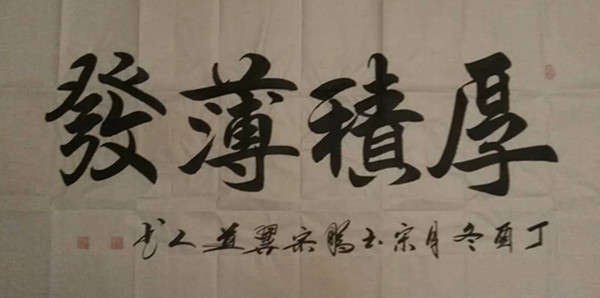 厚積薄發
丁酉冬月宗玉鵬宗翼道人书